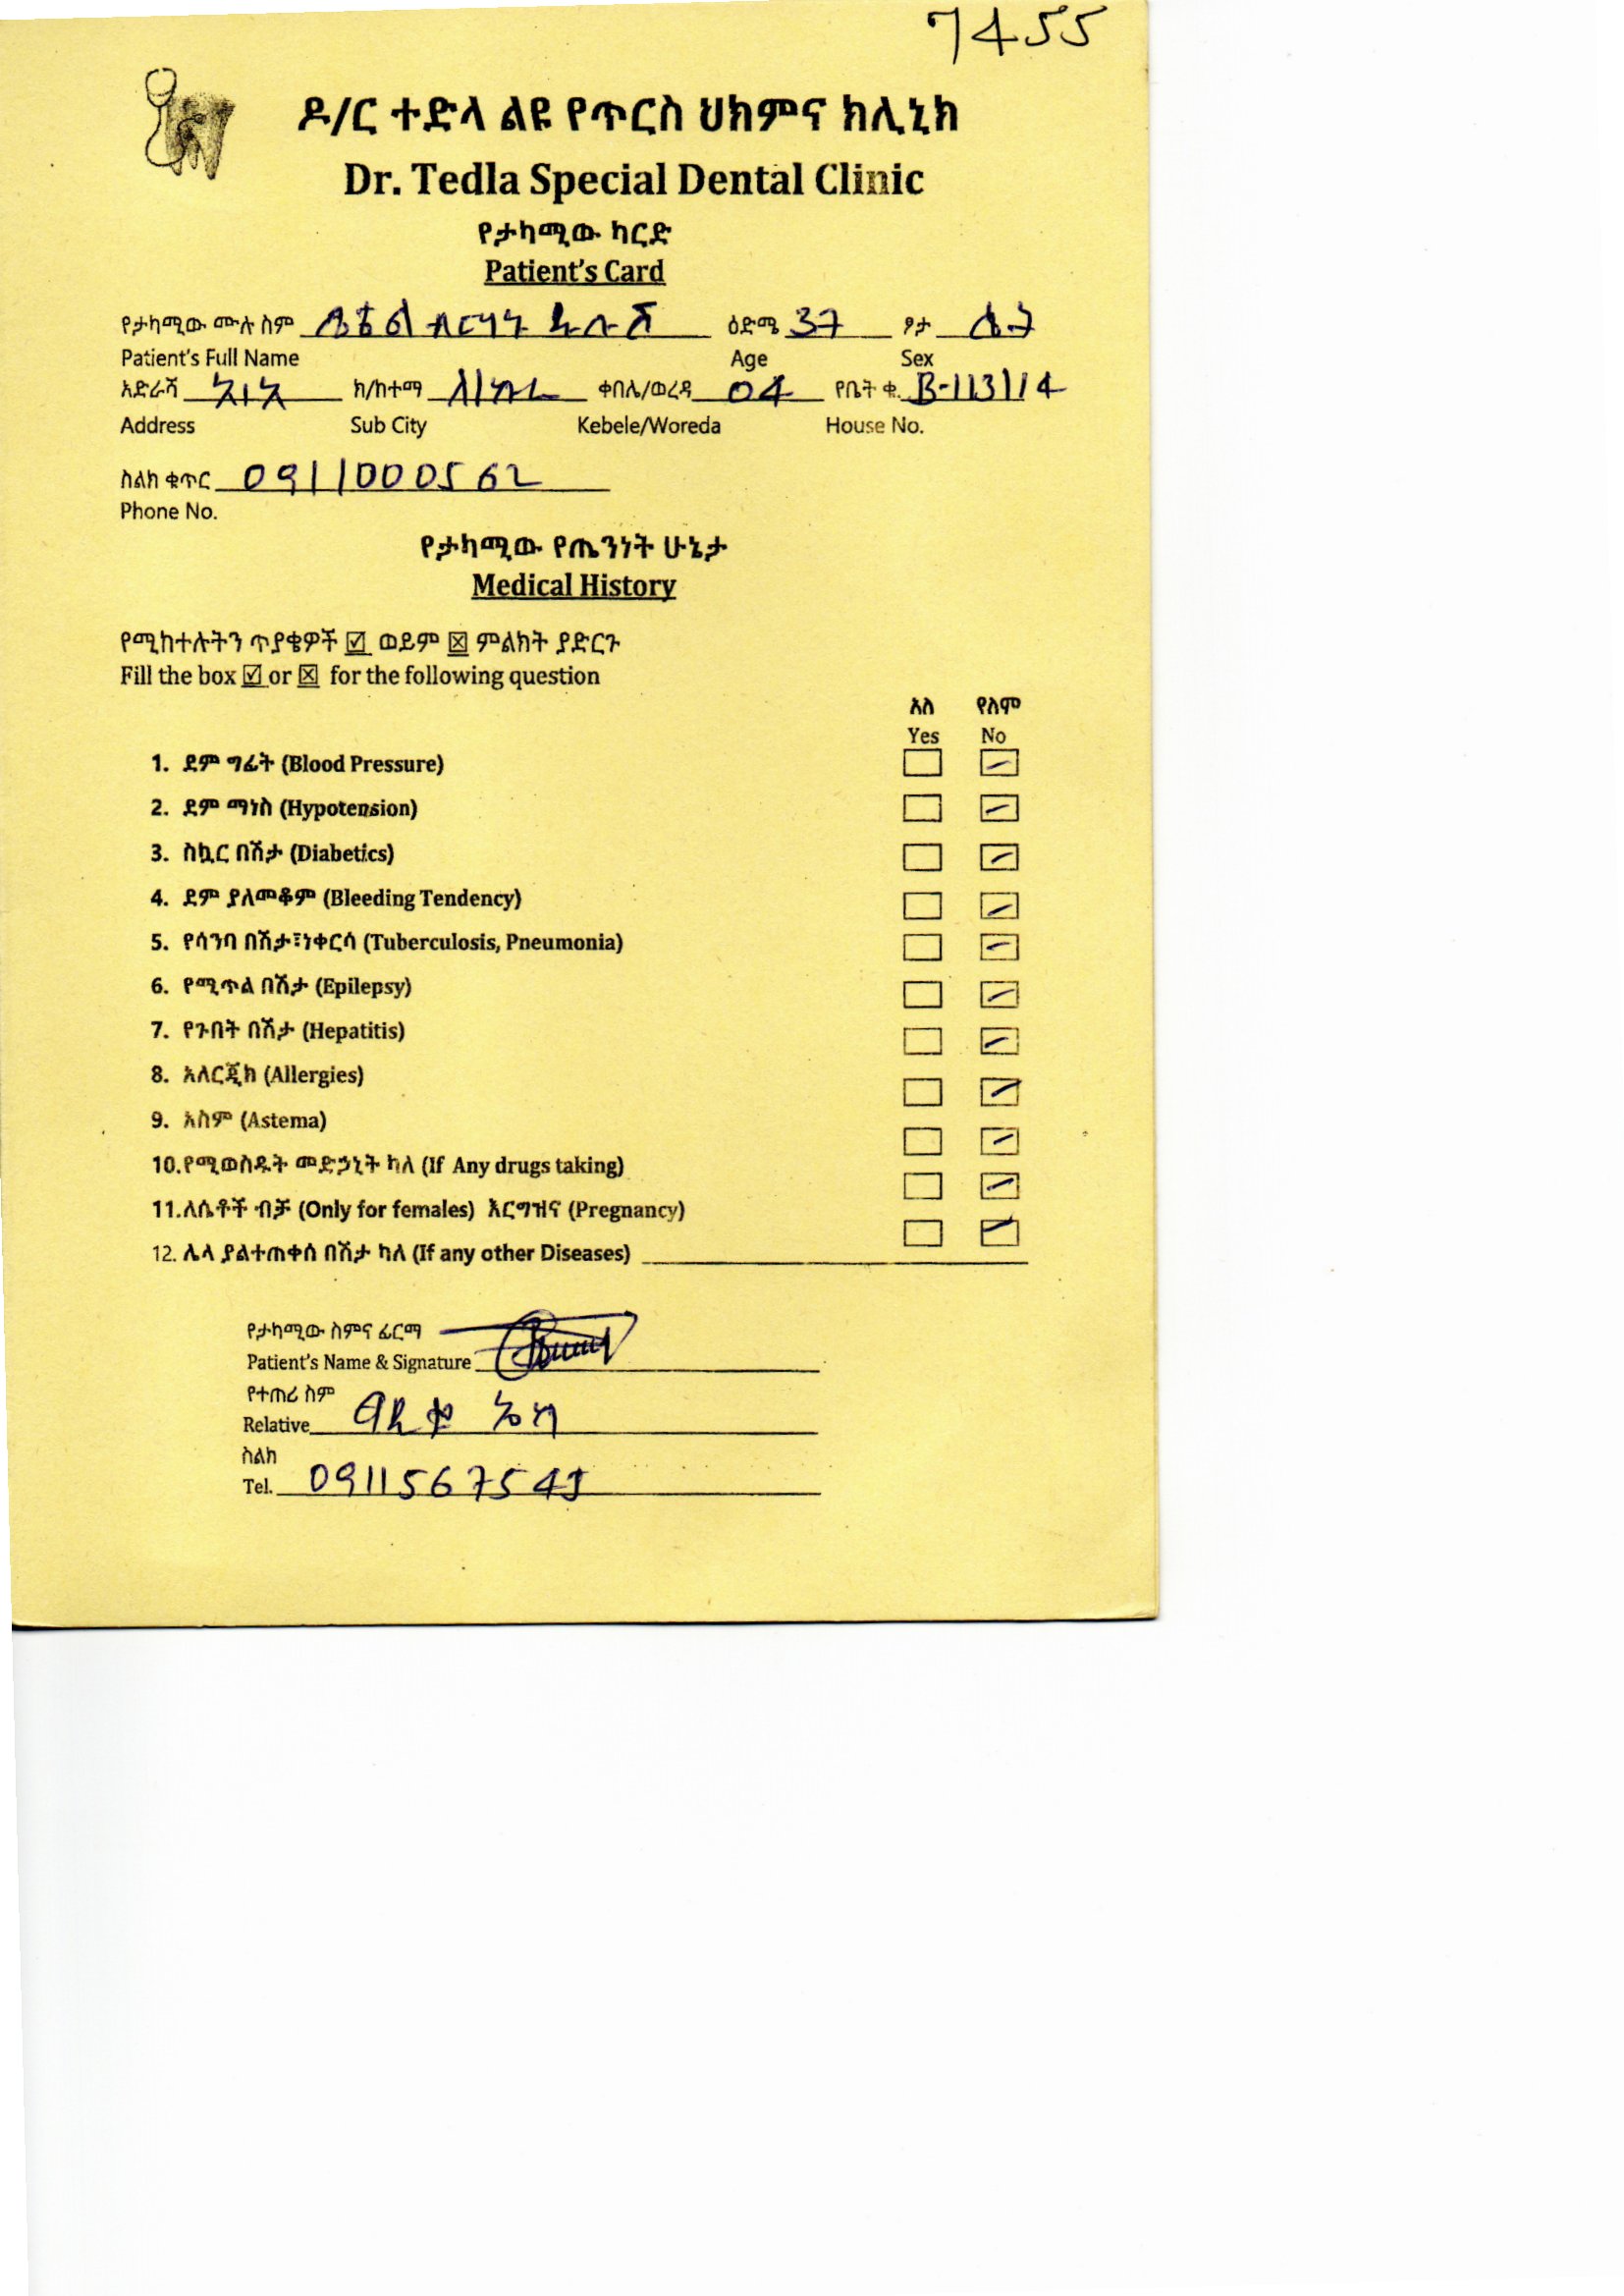 7455
ዶ/ር ተድላ ልዩ የጥርስ ህክምና ክሊኒክ
Dr. Tedla Special Dental Clinic
የታካሚው ካርድ
Patient's Card
የታካሚው ሙሉ ስም ዕድሜ 37 ፆታ ሴት
Patient's Full Name Age Sex
አድራሻ ክ/ከተማ ቀበሌ/ወረዳ 04 የቤት ቁ. B-113/14
Address Sub City Kebele/Woreda House No.
ስልክ ቁጥር 0911000562
Phone No.
የታካሚው የጤንነት ሁኔታ
Medical History
የሚከተሉትን ጥያቄዎች ☑ ወይም ☒ ምልክት ያድርጉ
Fill the box ☑ or ☒ for the following question
አለ የለም
Yes No
1. ደም ግፊት (Blood Pressure)
2. ደም ማነስ (Hypotension)
3. ስኳር በሽታ (Diabetics)
4. ደም ያለመቆም (Bleeding Tendency)
5. የሳንባ በሽታ፣ነቀርሳ (Tuberculosis, Pneumonia)
6. የሚጥል በሽታ (Epilepsy)
7. የጉበት በሽታ (Hepatitis)
8. አለርጂክ (Allergies)
9. አስም (Astema)
10.የሚወስዱት መድኃኒት ካለ (If Any drugs taking)
11.ለሴቶች ብቻ (Only for females) እርግዝና (Pregnancy)
12. ሌላ ያልተጠቀሰ በሽታ ካለ (If any other Diseases)
የታካሚው ስምና ፊርማ
Patient's Name & Signature
የተጠሪ ስም
Relative
ስልክ
Tel. 0911567545